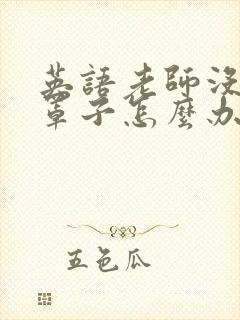 英語老師沒
罩子怎麼办
五色瓜